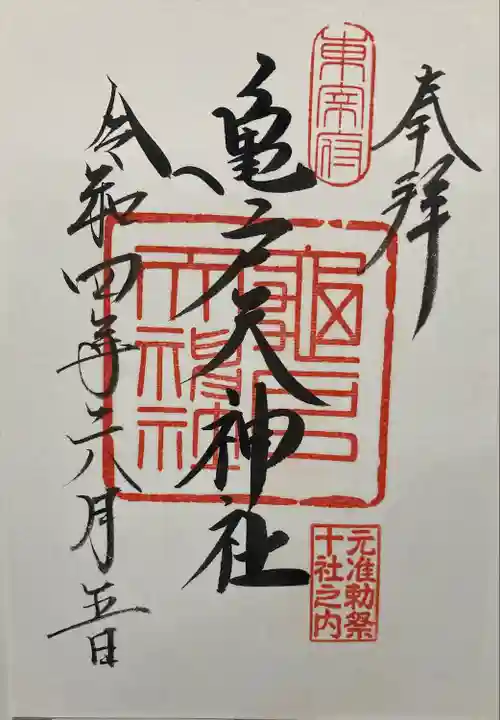 奉拝
東宰府
亀戸天神社
亀戸天神社
元准勅祭
十社之内
令和四年六月五日